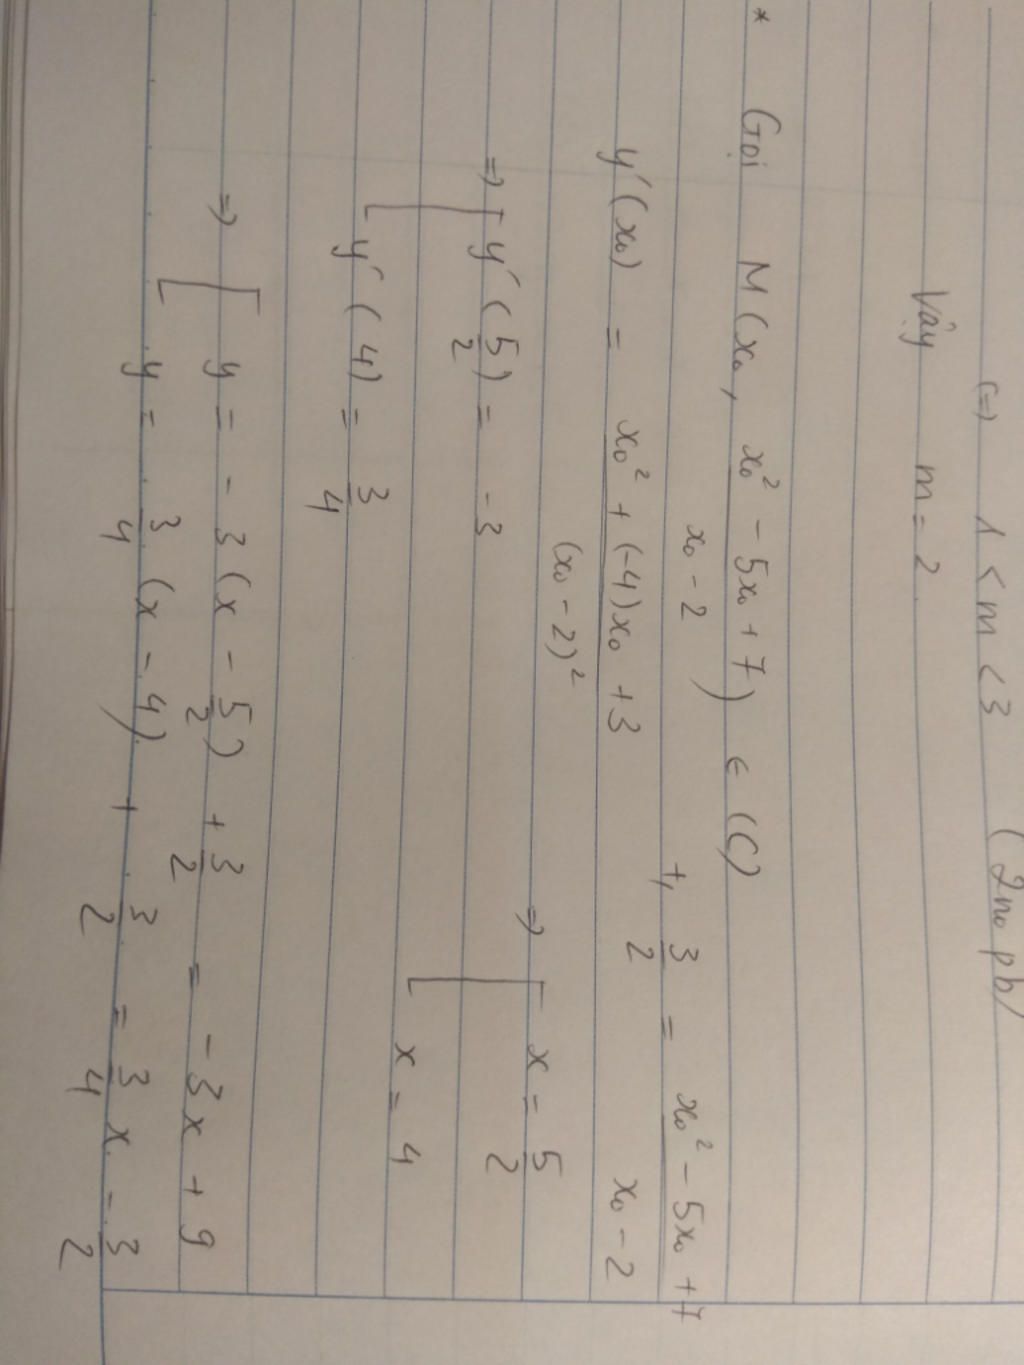 (=) 1 < m < 3 (2no pb)
Vậy m = 2.
* Gọi M(x₀, (x₀² - 5x₀ + 7)/(x₀ - 2)) ∈ (C)
+, 3/2 = (x₀² - 5x₀ + 7)/(x₀ - 2)
y'(x₀) = (x₀² + (-4)x₀ + 3)/(x₀ - 2)²
=> [ x = 5/2
x = 4
=> [ y'(5/2) = -3
y'(4) = 3/4
=> [ y = -3(x - 5/2) + 3/2 = -3x + 9
y = 3/4 (x - 4) + 3/2 = 3/4 x - 3/2